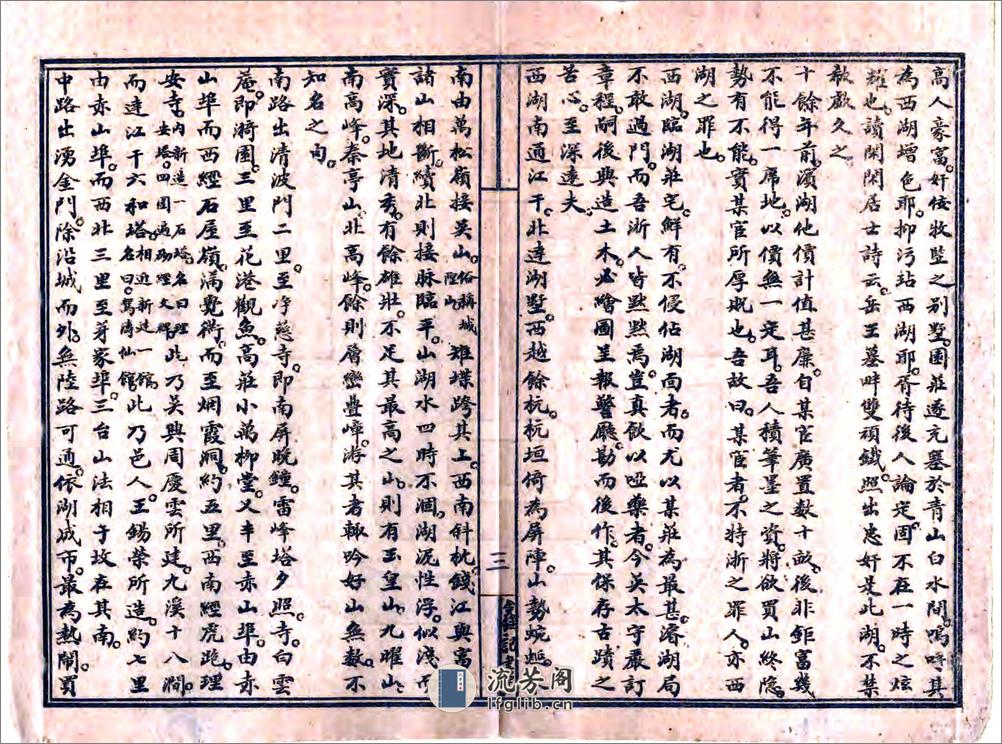 高人豪富。奸佞牧豎之别墅。園莊遂充塞於青山白水間。嗚呼。其
為西湖增色耶。抑污玷西湖耶。胥待後人論定。固不在一時之炫
耀也。讀閑閑居士詩云。岳王墓畔雙頑鐵。照出忠奸是此湖。不禁
欷歔久之。
十餘年前。濱湖他價計值甚廉。自某宦廣置數十畝。後非鉅富幾
不能得一席地。以價無一定耳。吾人積筆墨之資。將欲買山終隱。
勢有不能。實某宦所厚貺也。吾故曰。某宦者。不特浙之罪人。亦西
湖之罪也。
西湖。臨湖莊宅鮮有不侵佔湖面者。而尤以某莊為最甚。濬湖局
不敢過門。而吾浙人皆默默焉。豈真飲以啞藥者。今吳太守嚴訂
章程。嗣後興造土木。必繪圖呈報警廳。勘而後作。其保存古蹟之
苦心。至深遠夫。
西湖南通江干。北達湖墅。西越餘杭。杭垣倚為屏障。山勢蜿蜒。
三
南由萬松嶺接吳山。俗稱城隍山。雉堞跨其上。西南斜枕錢江。與富
諸山相斷續。北則接脉臨平。山湖水四時不涸。湖泥性浮。似淺而
實深。其地清秀。有餘雄壯。不足其最高之山。則有玉皇山。九曜山。
南高峰。秦亭山。北高峰。餘則層巒疊嶂。游其者輒吟好山無數不
知名之句。
南路出清波門二里。至净慈寺。即南屏晚鐘。雷峰塔夕照。寺。白雲
庵。即漪園。三里至花港觀魚。高莊小萬柳堂。又半至赤山埠。由赤
山埠而西經石屋嶺。滿覺衖。而至烟霞洞。約五里。西南經虎跑。理
安寺。内新造一石塔。名曰理安塔。四圍遍砌經文碑。此乃吳興周慶雲所建。九溪十八澗。
而達江干六和塔。相近新建一館。名曰鶯濤仙館。此乃邑人王錫榮所造。約七里
由赤山埠。而西北三里至茅家埠。三台山法相于墳在其南。
中路出湧金門。除沿城而外。無陸路可通。依湖城市。最為熱鬧。買
流芳阁
lfglib.cn